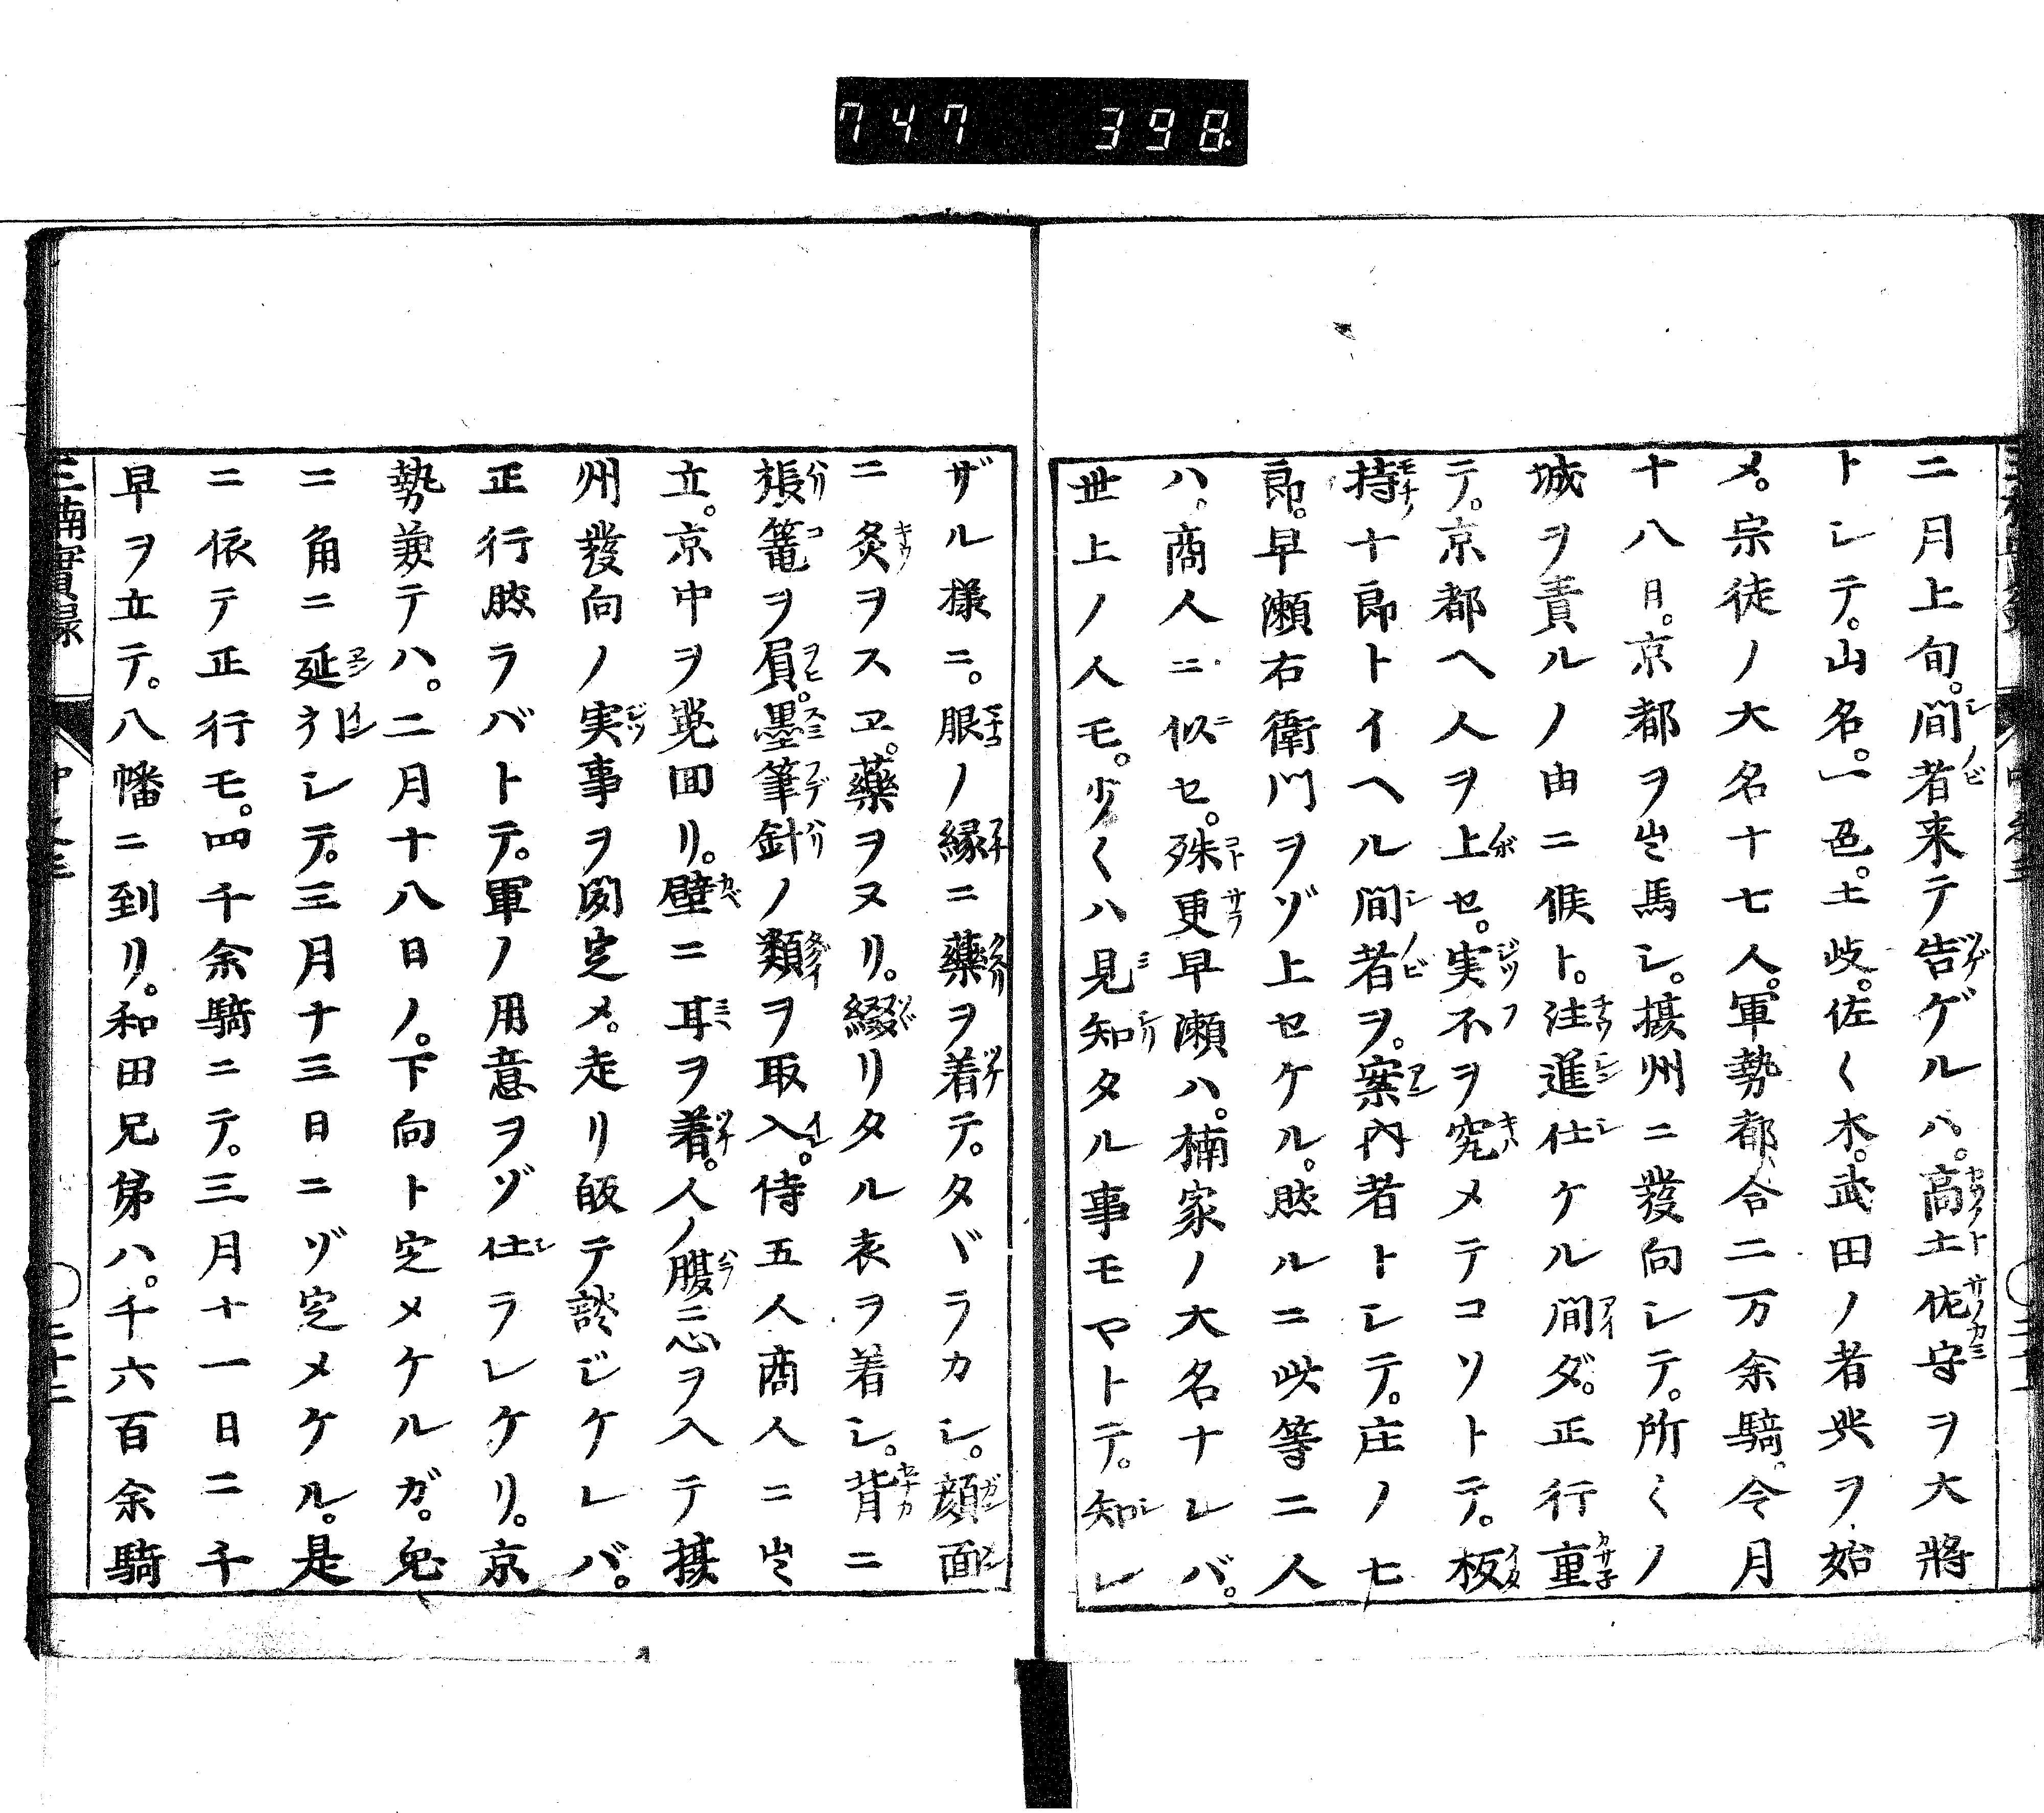 747 398
二月上旬。間者来テ告ゲルハ。高土佐守ヲ大將
トシテ。山名。一色。土岐。佐〱木。武田ノ者共ヲ始
メ。宗徒ノ大名十七人。軍勢都合二万余騎。今月
十八日。京都ヲ出馬シ。摂州ニ發向シテ。所〱ノ
城ヲ責ルノ由ニ候ト。注進仕ケル間ダ。正行重
テ。京都ヘ人ヲ上セ。実不ヲ究メテコソトテ。板
持十郎トイヘル間者ヲ。案内者トシテ。庄ノ七
郎。早瀬右衛門ヲゾ上セケル。然ルニ此等二人
ハ。商人ニ似セ。殊更早瀬ハ。楠家ノ大名ナレバ。
世上ノ人モ。少〱ハ見知タル事モヤトテ。知レ
ザル様ニ。眼ノ縁ニ藥ヲ着テ。タヾラカシ。顔面
ニ灸ヲスヱ。藥ヲヌリ。綴リタル衣ヲ着シ。背ニ
張篭ヲ負。墨筆針ノ類ヲ取入。侍五人商人ニ出
立。京中ヲ晃回リ。壁ニ耳ヲ着。人ノ腹ニ心ヲ入テ摂
州發向ノ実事ヲ聞定メ。走リ皈テ談ジケレバ。
正行然ラバトテ。軍ノ用意ヲゾ仕ラレケリ。京
勢兼テハ。二月十八日ノ。下向ト定メケルガ。兔
ニ角ニ延引シテ。三月十三日ニゾ定メケル。是
ニ依テ正行モ。四千余騎ニテ。三月十一日二千
早ヲ立テ。八幡ニ到リ。和田兄弟ハ。千六百余騎
三楠實録 二十二